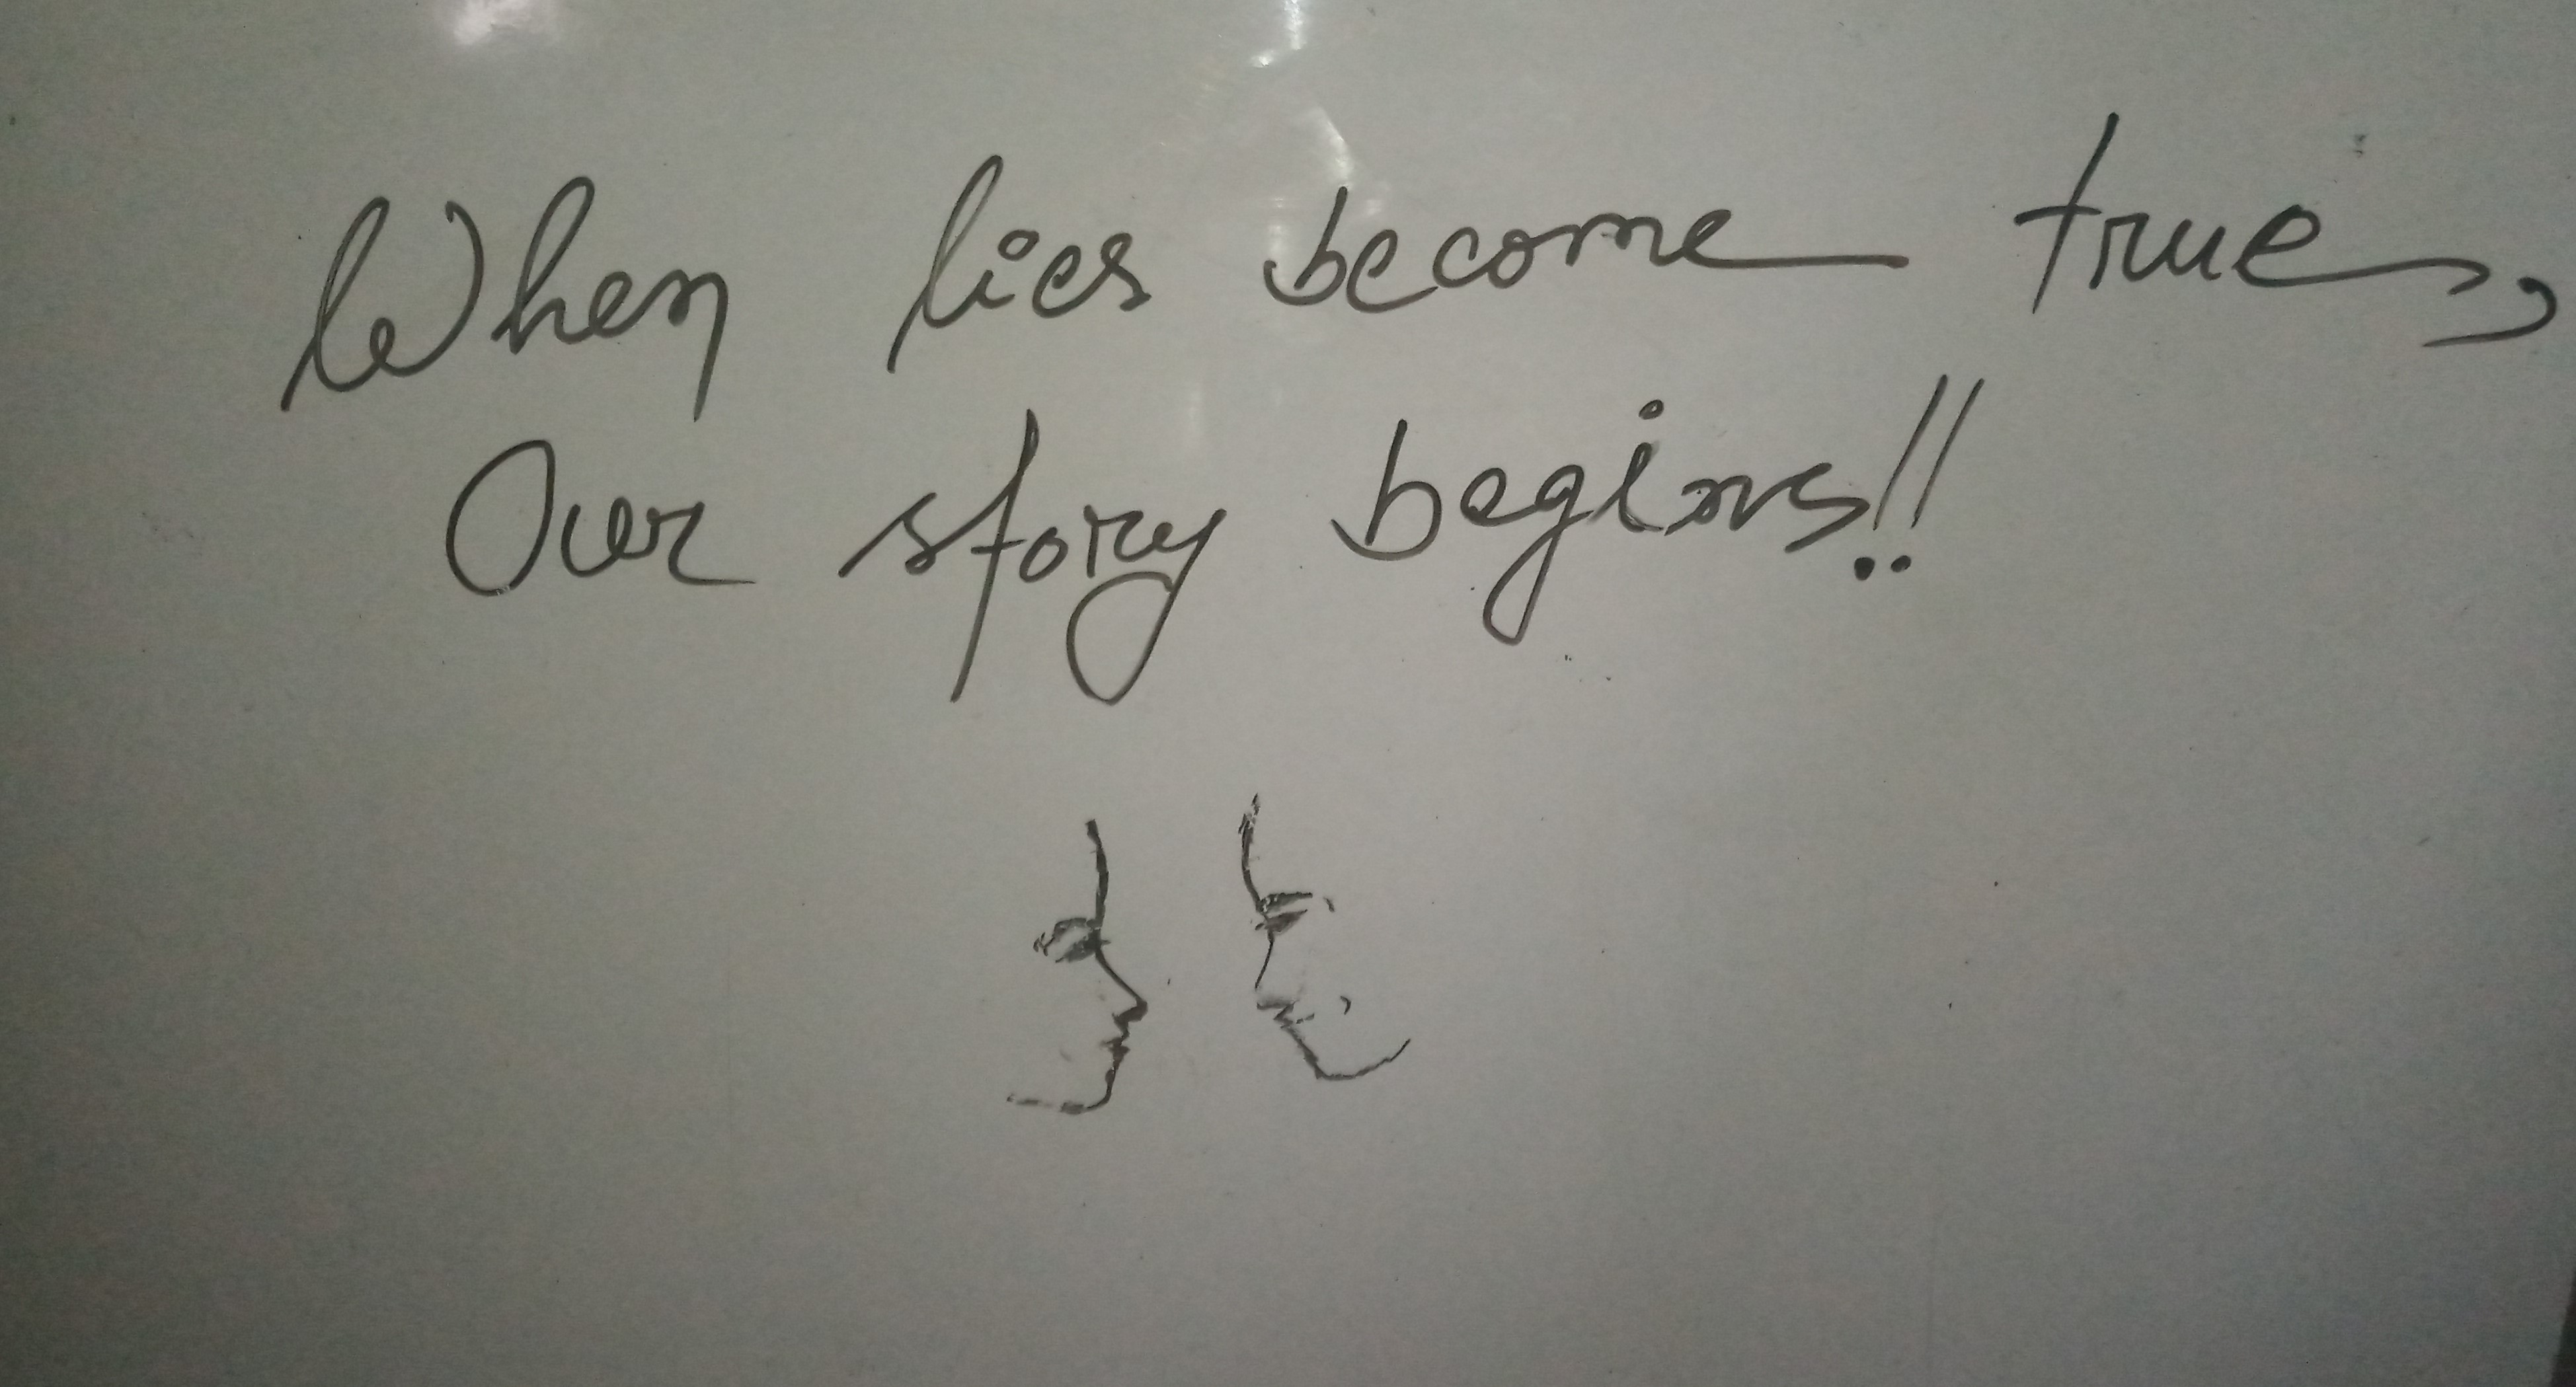 When lies become true,
Our story begins!!